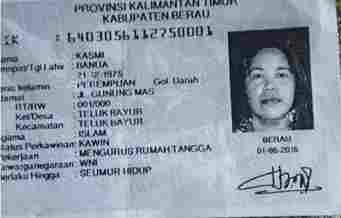 PROVINSI KALIMANTAN TIMUR
KABUPATEN BERAU
IK : 6403056112750001
: KASMI
mpat/Tgl Lahir : BANUA
21-12-1975
nis kelamin : PEREMPUAN Gol. Darah
lamat : JL. GUNUNG MAS
RT/RW : 001/000
Kel/Desa : TELUK BAYUR
Kecamatan : TELUK BAYUR
gama : ISLAM
tatus Perkawinan: KAWIN
ekerjaan : MENGURUS RUMAH TANGGA
ewarganegaraan: WNI
erlaku Hingga : SEUMUR HIDUP
BERAU
01-06-2016